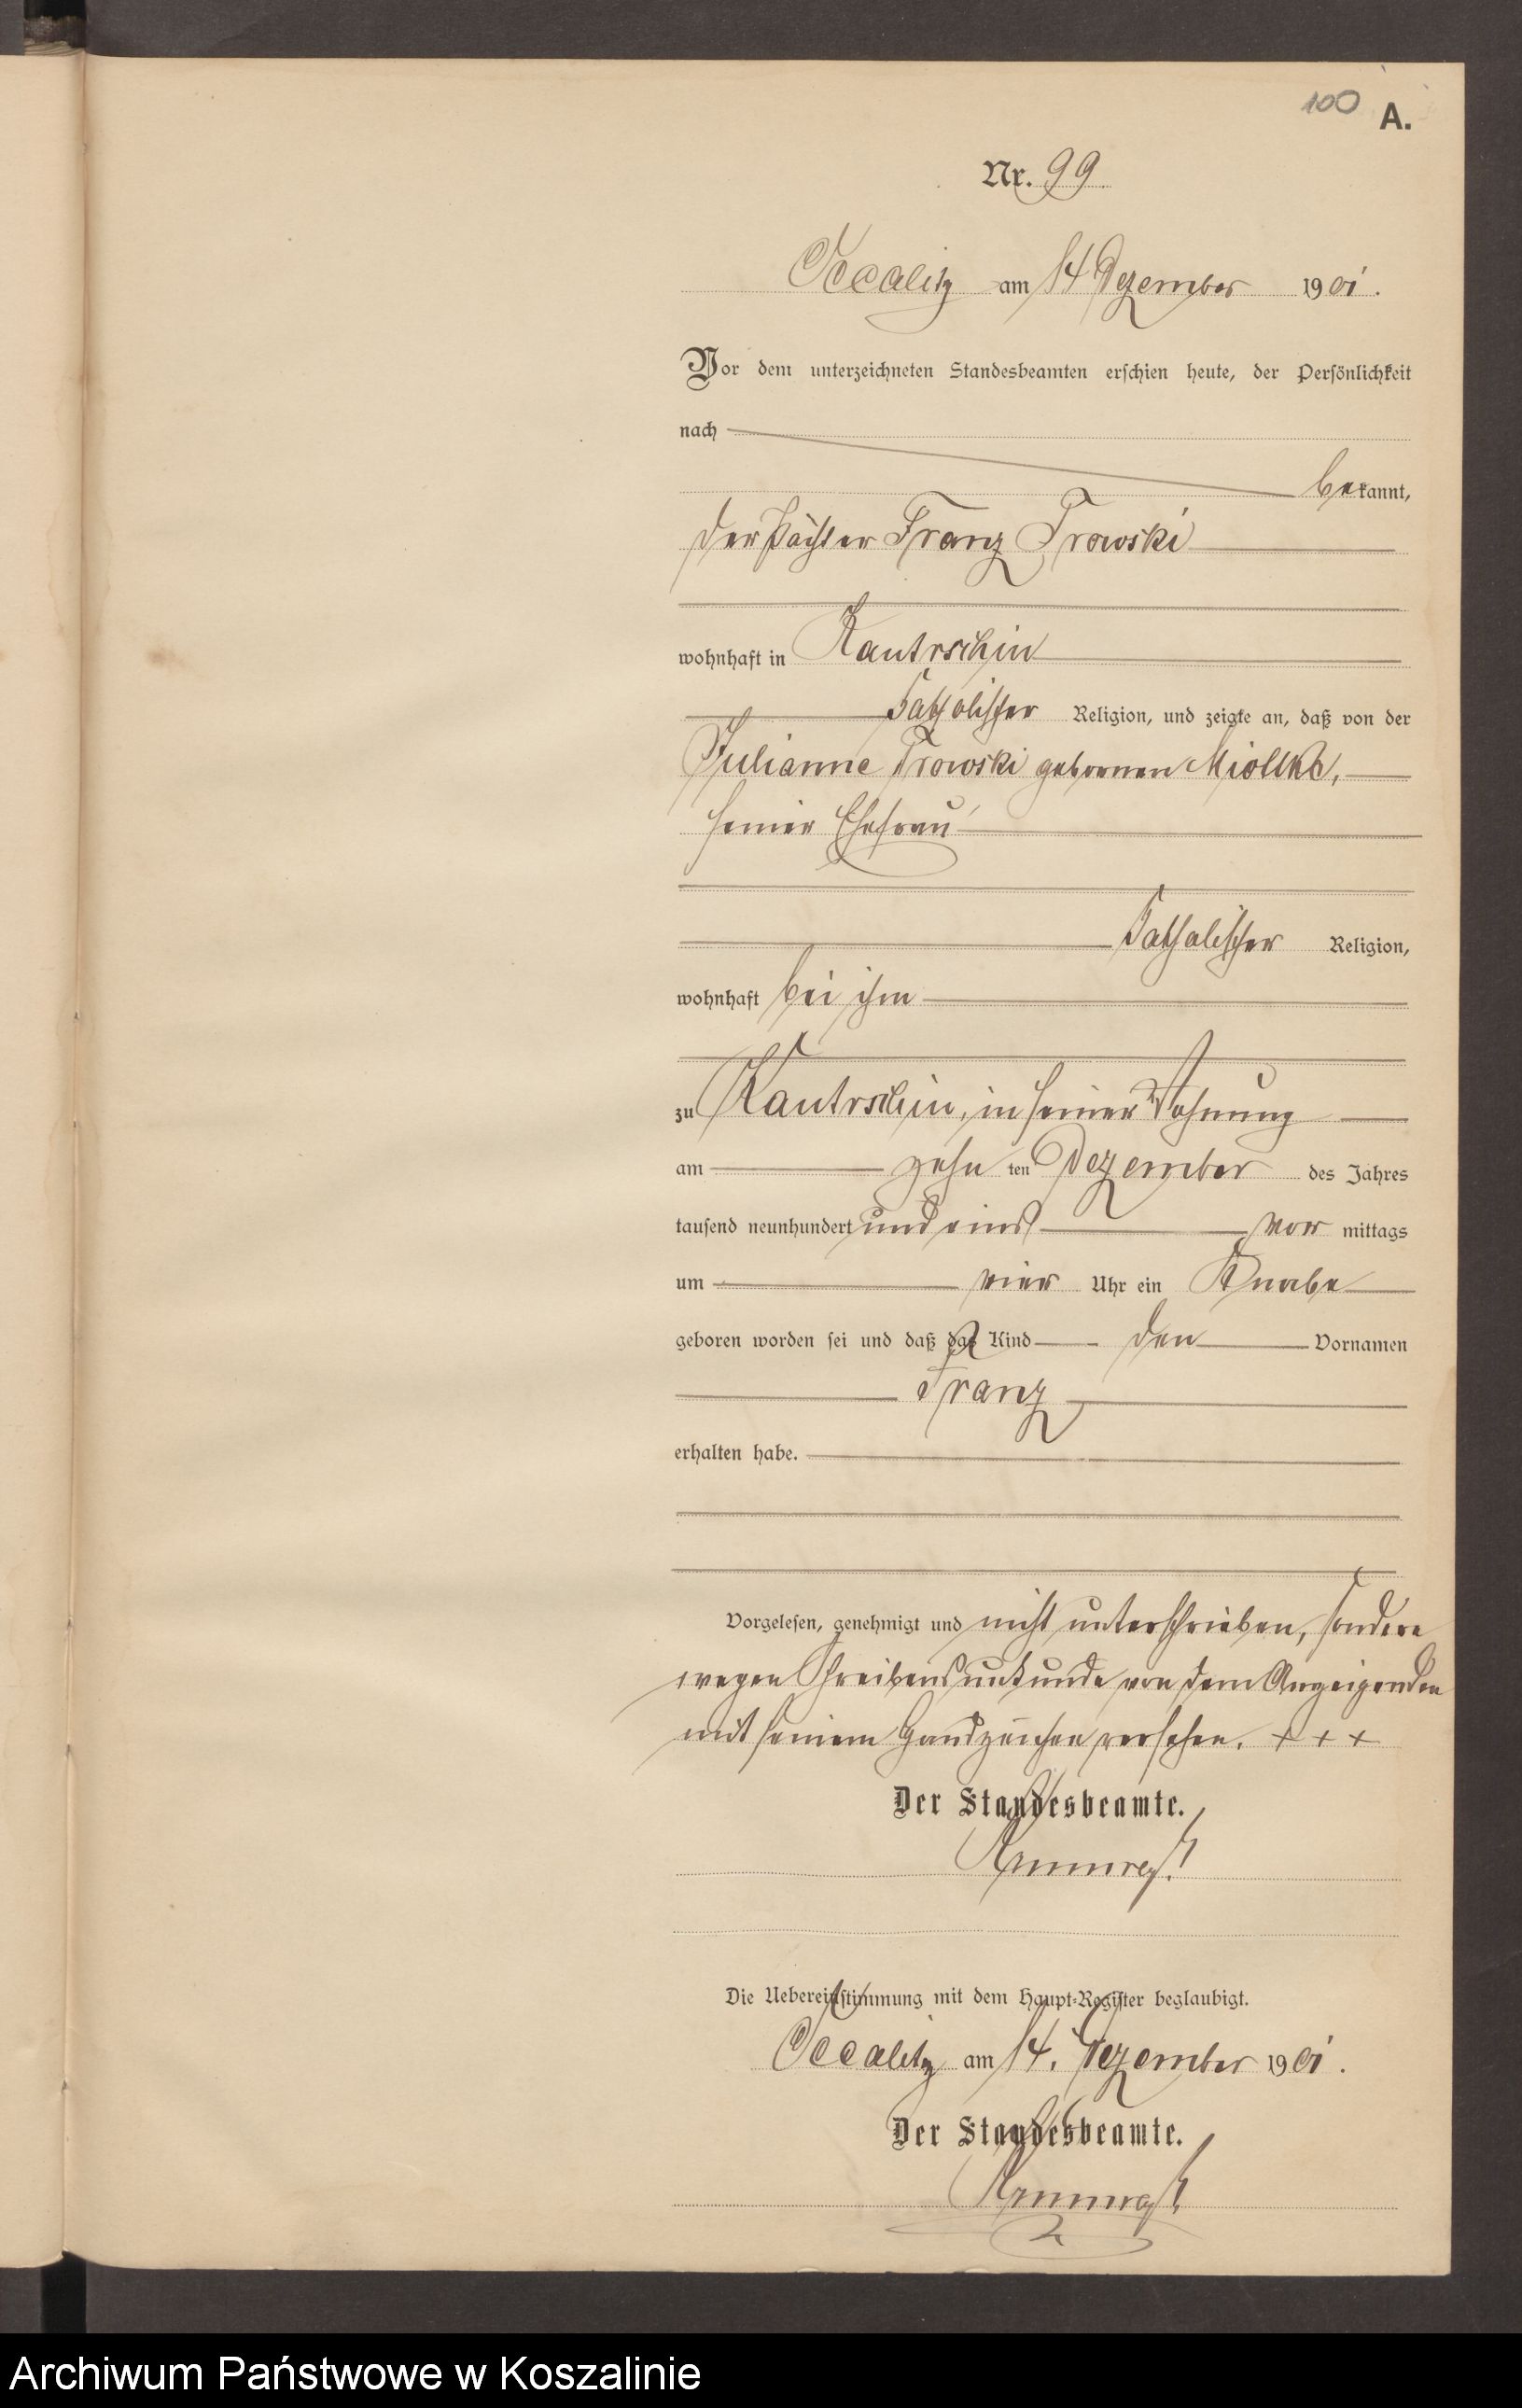 100 A.
Nr. 99
Occalitz am 14 Dezember 1901.
Vor dem unterzeichneten Standesbeamten erschien heute, der Persönlichkeit
nach
bekannt,
der Pächter Franz Trowski
wohnhaft in Kantrschin
katholischer Religion, und zeigte an, daß von der
Julianne Trowski gebornen Miollke,
seiner Ehefrau
katholischer Religion,
wohnhaft bei ihm
zu Kantrschin, in seiner Wohnung
am zehn ten Dezember des Jahres
tausend neunhundert und eins vor mittags
um vier Uhr ein Knabe
geboren worden sei und daß das Kind den Vornamen
Franz
erhalten habe.
Vorgelesen, genehmigt und nicht unterschrieben, sondern
wegen Schreibensunkunde von dem Anzeigenden
mit seinem Handzeichen versehen. + + +
Der Standesbeamte.
Die Uebereinstimmung mit dem Haupt-Register beglaubigt.
Occalitz am 14. Dezember 1901.
Der Standesbeamte.
Archiwum Państwowe w Koszalinie